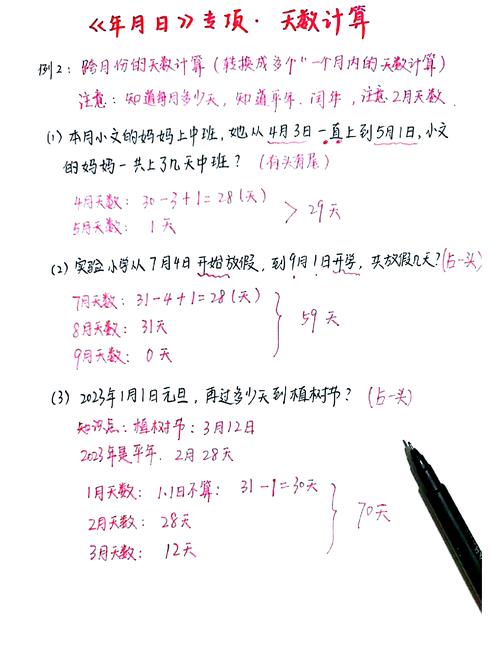 《年月日》专项·天数计算
例2：跨月份的天数计算（转换成多个"一个月内的天数计算）
注意：知道每月多少天，知道平年、闰年，注意2月天数.
(1) 本月小文的妈妈上中班，她从4月3日一直上到5月1日，小文
的妈妈一共上了几天中班？（有头有尾）
4月天数：30-3+1=28(天)
5月天数：1天
> 29天
(2) 实验小学从7月4日开始放假，到9月1日开学，共放假几天？(占一头)
7月天数：31-4+1=28(天)
8月天数：31天
9月天数：0天
} 59天
(3) 2023年1月1日元旦，再过多少天到植树节？（占一头）
知识点：植树节：3月12日
2023年是平年. 2月28天
1月天数：1.1日不算：31-1=30天
2月天数：28天
3月天数：12天
} 70天